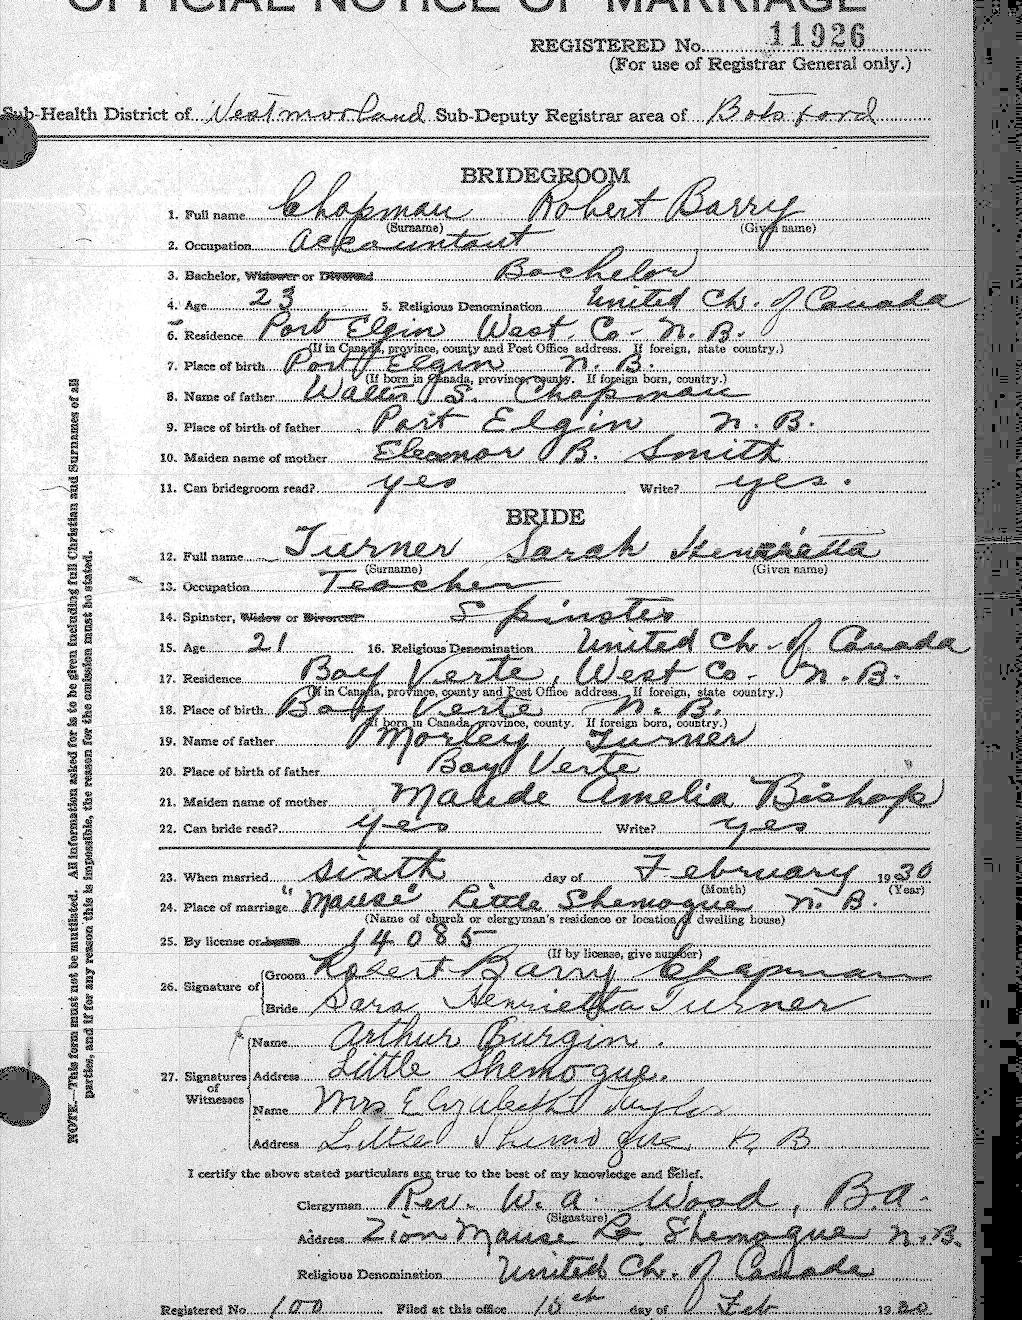 OFFICIAL NOTICE OF MARRIAGE
REGISTERED No. 11926
(For use of Registrar General only.)
Sub-Health District of Westmorland Sub-Deputy Registrar area of Botsford
BRIDEGROOM
1. Full name Chapman Robert Barry
(Surname) (Given name)
2. Occupation Accountant
3. Bachelor, Widower or Divorced Bachelor
4. Age 23 5. Religious Denomination United Ch. of Canada
6. Residence Port Elgin West. Co. N. B.
(If in Canada, province, county and Post Office address. If foreign, state country.)
7. Place of birth Port Elgin N. B.
(If born in Canada, province, county. If foreign born, country.)
8. Name of father Walter S. Chapman
9. Place of birth of father Port Elgin N. B.
10. Maiden name of mother Eleanor B. Smith
11. Can bridegroom read? yes Write? yes.
BRIDE
12. Full name Turner Sarah Henrietta
(Surname) (Given name)
13. Occupation Teacher
14. Spinster, Widow or Divorced Spinster
15. Age 21 16. Religious Denomination United Ch. of Canada
17. Residence Bay Verte, West Co. N. B.
(If in Canada, province, county and Post Office address. If foreign, state country.)
18. Place of birth Bay Verte N. B.
(If born in Canada, province, county. If foreign born, country.)
19. Name of father Morley Turner
20. Place of birth of father Bay Verte
21. Maiden name of mother Maude Amelia Bishop
22. Can bride read? yes Write? yes
23. When married sixth day of February 1930
(Month) (Year)
24. Place of marriage "Manse" Little Shemogue N. B.
(Name of church or clergyman's residence or location of dwelling house)
25. By license or banns 14085
(If by license, give number)
26. Signature of Groom Robert Barry Chapman
Bride Sara Henrietta Turner
27. Signatures of Witnesses Name Arthur Burgin.
Address Little Shemogue.
Name Mrs Elizabeth Taylor
Address Little Shemogue N B
I certify the above stated particulars are true to the best of my knowledge and belief.
Clergyman Rev. W. A. Wood, B.A.
(Signature)
Address Zion Manse Lt. Shemogue N.B.
Religious Denomination United Ch. of Canada
Registered No 100 Filed at this office 10th day of Feb 1930
NOTE.—This form must not be mutilated. All information asked for is to be given including full Christian and Surnames of all
parties, and if for any reason this is impossible, the reason for the omission must be stated.